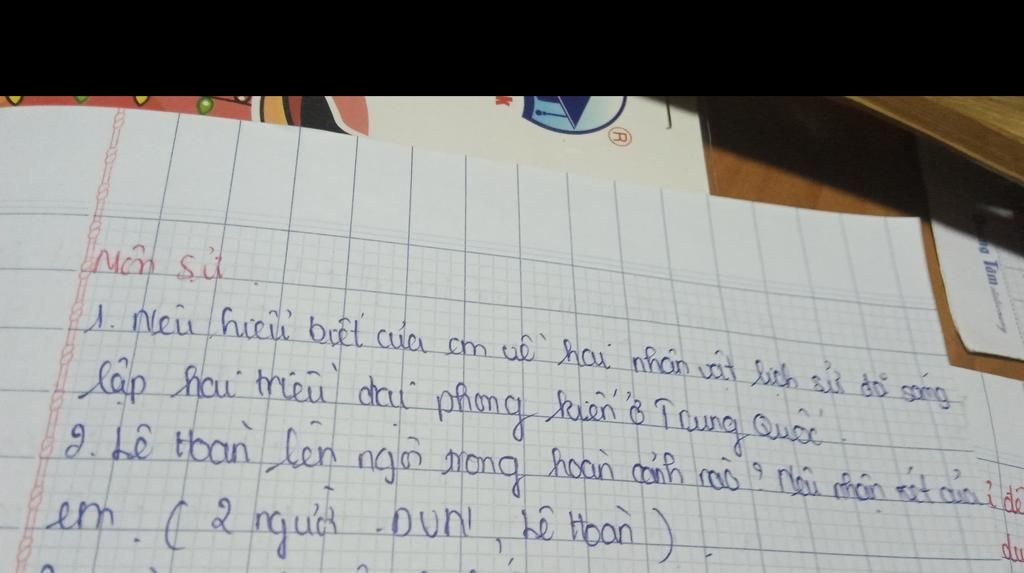 Môn sử
1. Nêu hiểu biết của em về hai nhân vật lịch sử đã sáng
lập hai triều đại phong kiến ở Trung Quốc.
2. Lê Hoàn lên ngôi trong hoàn cảnh nào? Nêu nhận xét của
em. (2 người. DVNT, Lê Hoàn).
®
Tâm